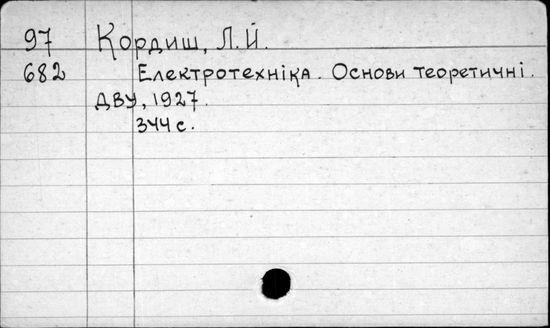 97 Кордиш, Л.Й.
682 Електротехніка. Основи теоретичні.
ДВУ, 1927.
344 с.